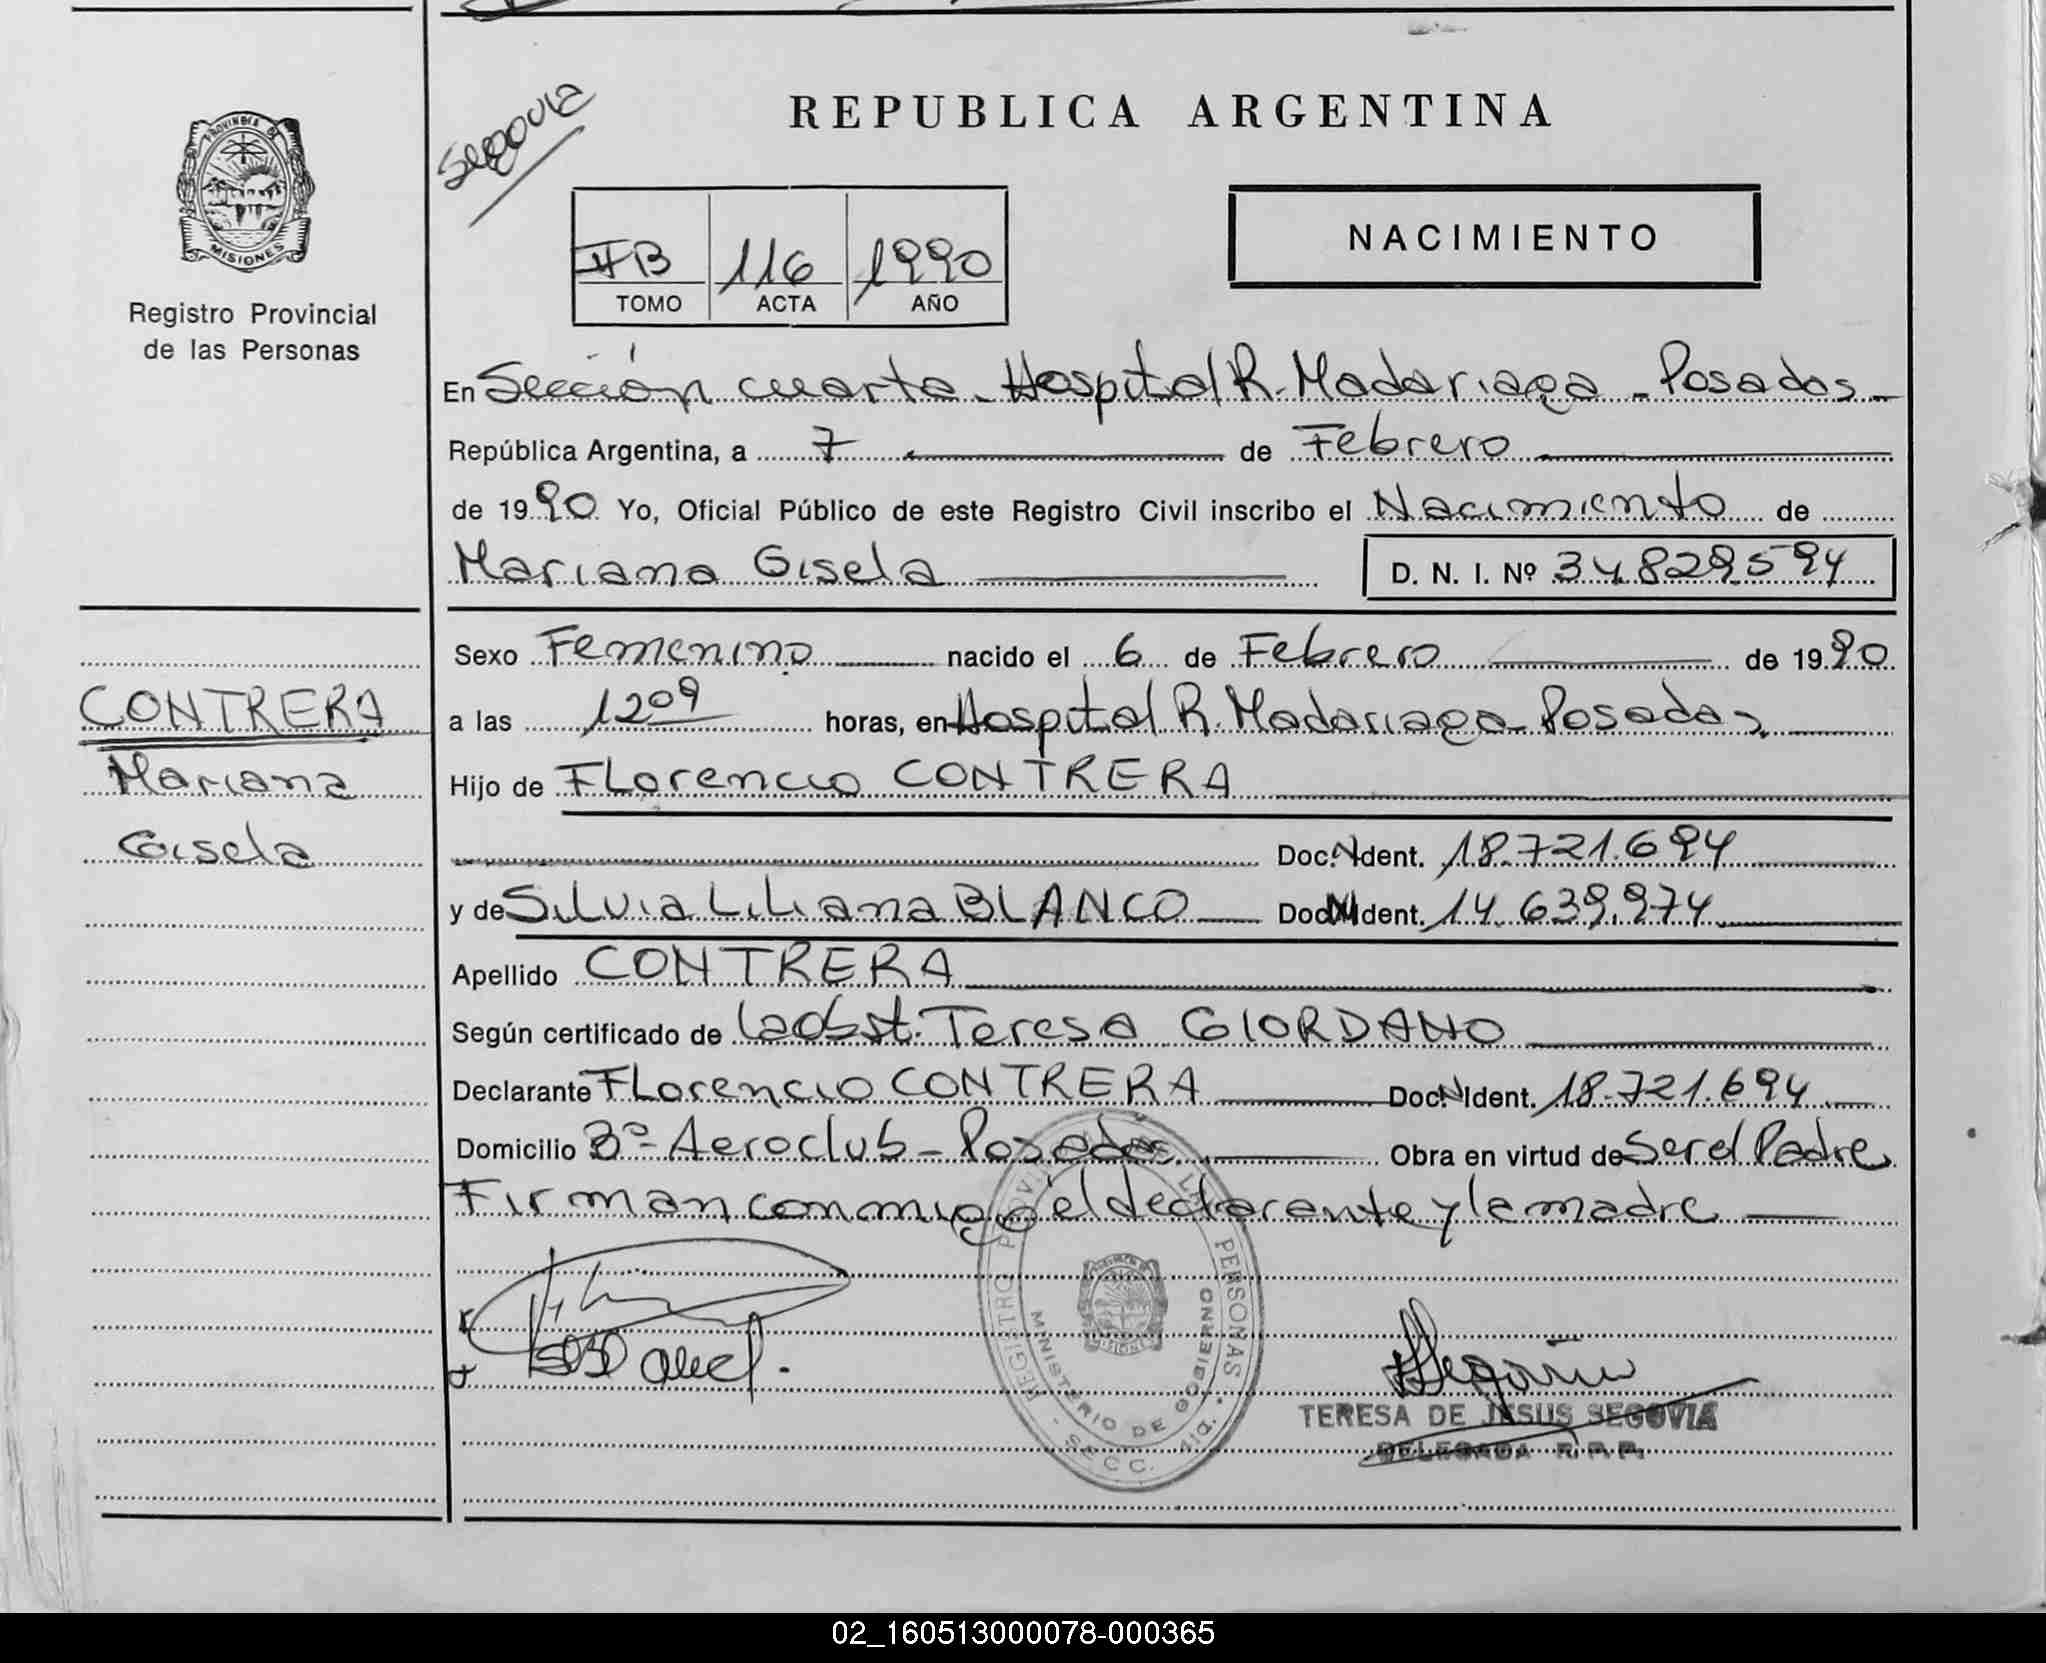 Segovia
REPUBLICA ARGENTINA
PROVINCIA DE
MISIONES
Registro Provincial
de las Personas
NACIMIENTO
II B 116 1990
TOMO ACTA AÑO
En Sección cuarta - Hospital R. Madariaga - Posadas -
República Argentina, a 7 de Febrero
de 1990 Yo, Oficial Público de este Registro Civil inscribo el Nacimiento de
Mariana Gisela D. N. I. Nº 34829594
Sexo Femenino nacido el 6 de Febrero de 1990
a las 12 09 horas, en Hospital R. Madariaga - Posadas
CONTRERA
Mariana
Gisela
Hijo de FLorencio CONTRERA
Doc. N Ident. 18.721.694
y de SiLvia LiLiana BLANCO Doc. N Ident. 14.639.974
Apellido CONTRERA
Según certificado de la obst. Teresa GIORDANO
Declarante FLorencio CONTRERA Doc. N Ident. 18.721.694
Domicilio Bº Aeroclub - Posadas Obra en virtud de Ser el Padre
Firman conmigo el declarante y la madre
REGISTRO PROV. DE LAS PERSONAS
MINISTERIO DE GOBIERNO
MISIONES
SECC. 4ta.
TERESA DE JESUS SEGOVIA
DELEGADA R.P.P.
02_160513000078-000365